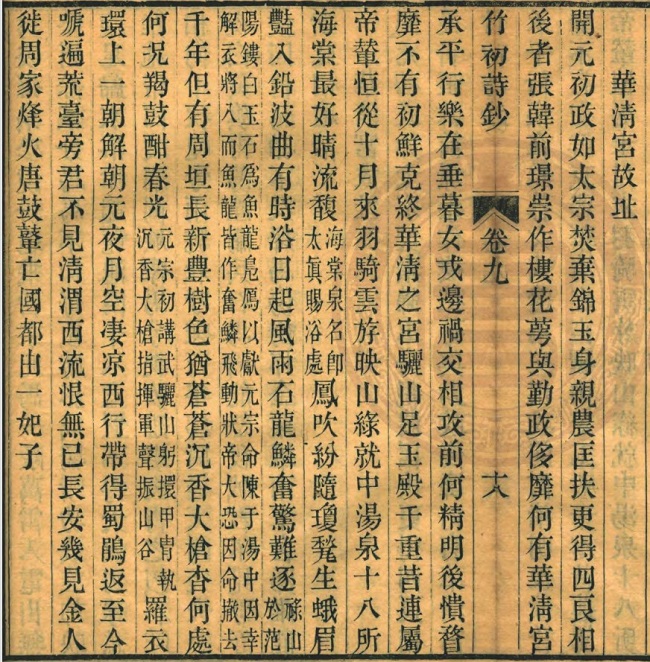 華清宮故址
開元初政如太宗焚棄錦玉身親農匡扶更得四良相
後者張韓前璟崇作樓花萼與勤政侈靡何有華清宮
竹初詩鈔 卷九 十八
承平行樂在垂暮女戎邊禍交相攻前何精明後憒瞀
靡不有初鮮克終華清之宮驪山足玉殿千重昔連屬
帝輦恒從十月來羽騎雲斿映山綠就中湯泉十八所
海棠最好晴流馥海棠泉名卽太眞賜浴處鳳吹紛隨瓊甃生蛾眉
豔入鉛波曲有時浴日起風雨石龍鱗奮驚難逐祿山於范
陽鏤白玉石爲魚龍鳧鴈以獻元宗命陳于湯中因幸
解衣將入而魚龍皆作奮鱗飛動狀帝大恐因命撤去
千年但有周垣長新豐樹色猶蒼蒼沉香大槍杳何處
何況羯鼓酣春光元宗初講武驪山躬擐甲冑執沉香大槍指揮軍聲振山谷羅衣
環上一朝解朝元夜月空凄凉西行帶得蜀鵑返至今
嗁遍荒臺旁君不見清渭西流恨無已長安幾見金人
徙周家烽火唐鼓鼙亡國都由一妃子